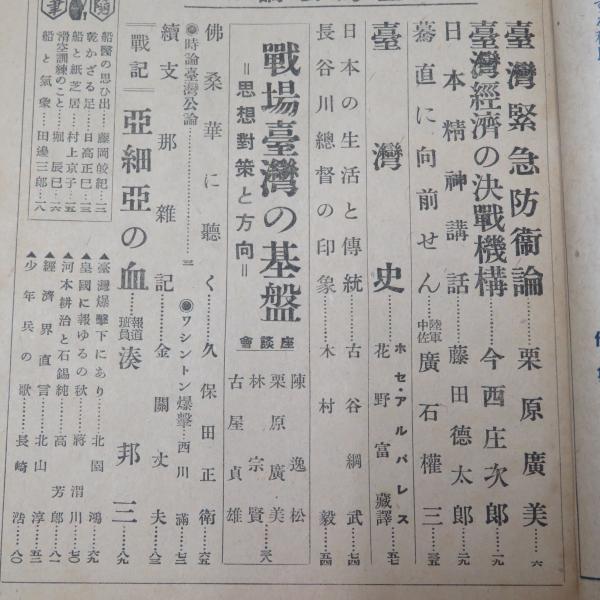 臺灣緊急防衞論……栗原廣美…六
臺灣經濟の決戰機構……今西庄次郎…一九
日本精神講話……藤田德太郎…二九
驀直に向前せん……陸軍中佐 廣石權三…三五
臺灣史……ホセ・アルバレス 花野富藏譯…五七
日本の生活と傳統……古谷綱武…七四
長谷川總督の印象……木村毅…五四
戰場臺灣の基盤
＝思想對策と方向＝
座談會
陳逸松
栗原廣美
林宗賢
古屋貞雄
…三八
佛桑華に聽く……久保田正衞…六五
◉時論臺灣公論……三
◉ワシントン爆擊…西川滿…七二
續支那雜記……金關丈夫…八三
戰記 亞細亞の血……報道班員 湊邦三…八九
隨筆
船醫の思ひ出……藤岡皎…二
乾かざる足…日高正巳…一三
船と紙芝居…村上京子…一五
滑空訓練のこと…堀辰巳…一六
船と氣象…田邊三郎…一八
▲臺灣爆擊下にあり……北園鴻…六九
▲皇國に報ゆるの秋…蔣渭川…七〇
▲河本耕治と石錫純…高芳郎…八一
▲經濟界直言…北山淳…五二
▲少年兵の歌…長崎浩…八〇